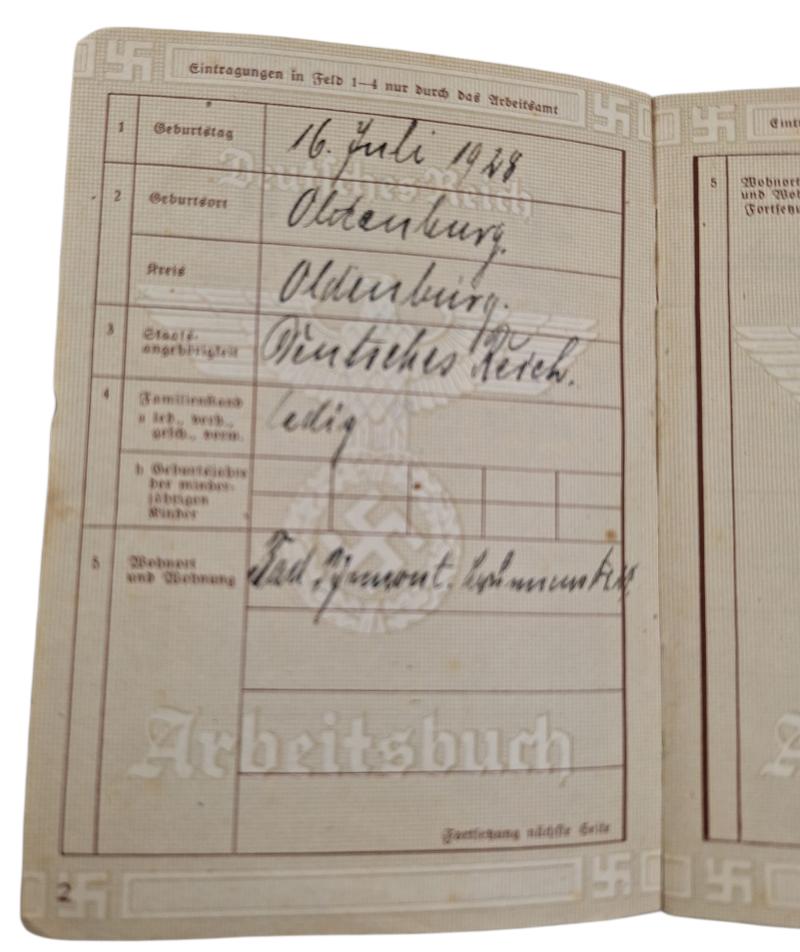 Eintragungen in Feld 1–4 nur durch das Arbeitsamt
1 Geburtstag 16. Juli 1928
Deutsches Reich
2 Geburtsort Oldenburg.
Kreis Oldenburg.
3 Staats-
angehörigkeit Deutsches Reich.
4 Familienstand
a led., verh.,
gesch., verw. ledig
b Geburtsjahre
der minder-
jährigen
Kinder
5 Wohnort
und Wohnung Bad Pyrmont.
Arbeitsbuch
Fortsetzung nächste Seite
2
5 Wohnort
und Wo
Fortsetzu